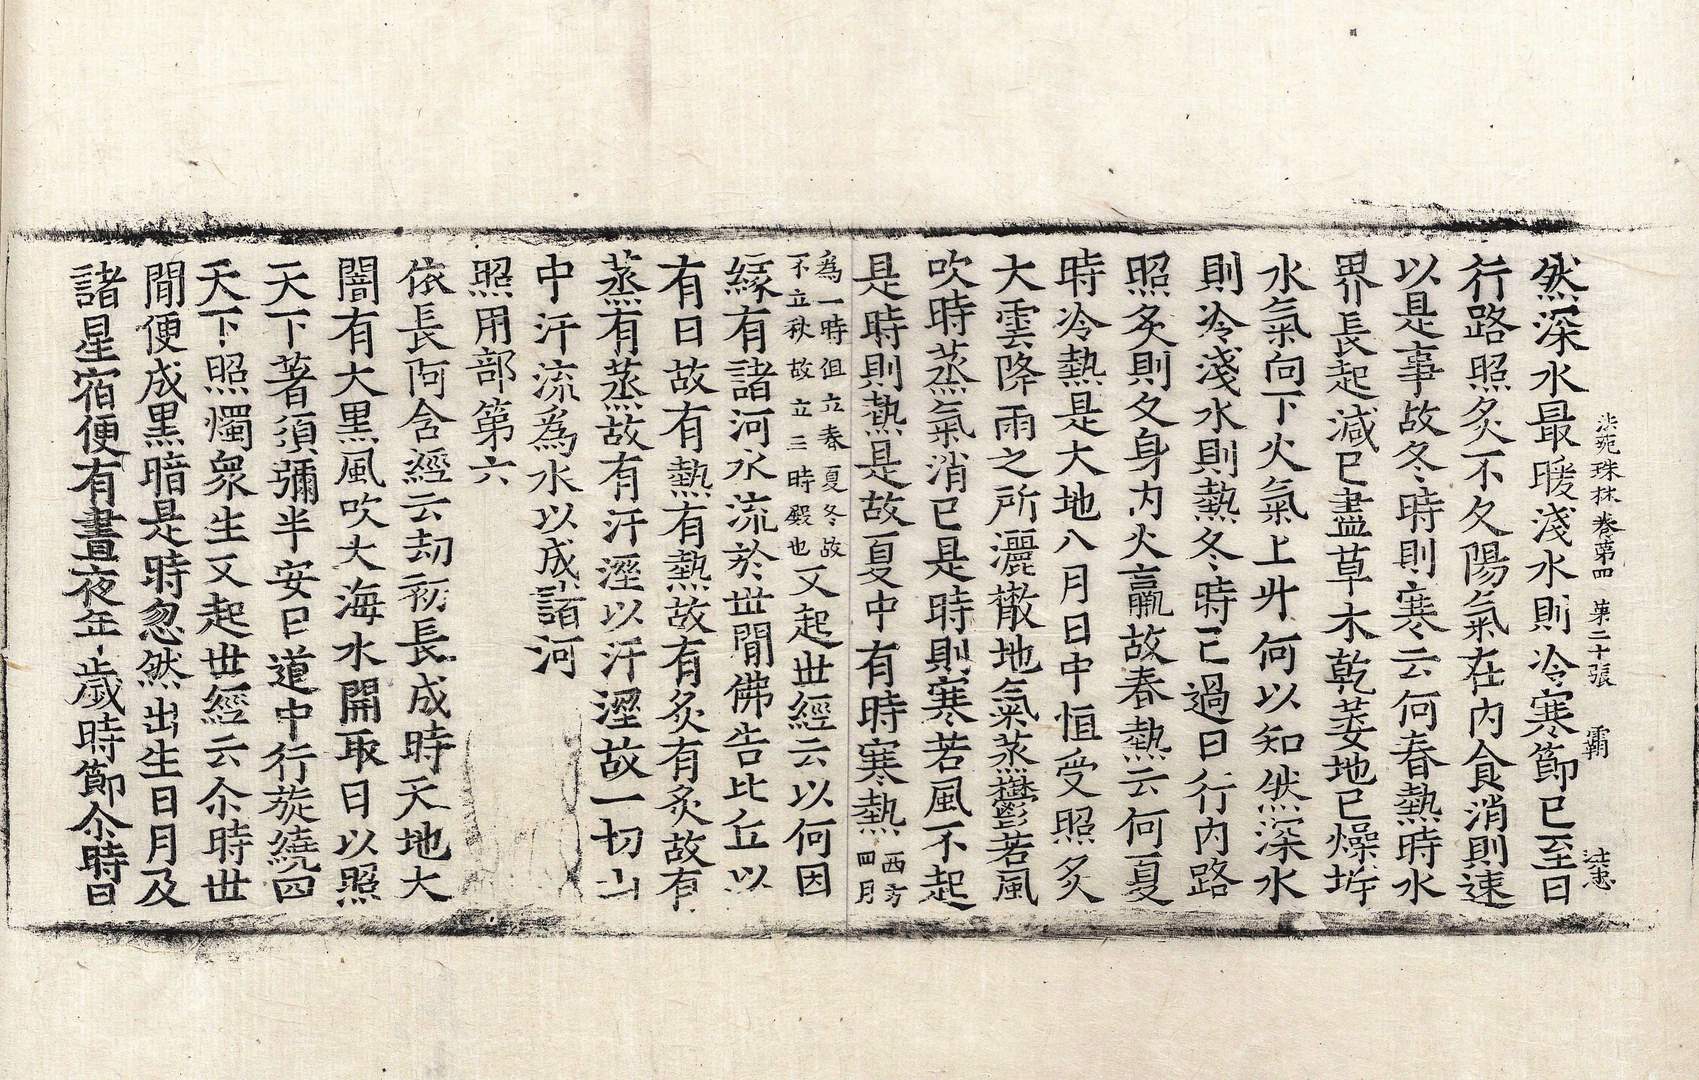 法苑珠林卷第四 第二十張 霸 法忠
然深水最暖淺水則冷寒節已至日
行路照炙不久陽氣在內食消則速
以是事故冬時則寒云何春熱時水
界長起減已盡草木乾萎地已燥坼
水氣向下火氣上升何以知然深水
則冷淺水則熱冬時已過日行內路
照炙則久身內火羸故春熱云何夏
時冷熱是大地八月日中恒受照炙
大雲降雨之所灑散地氣蒸鬱若風
吹時蒸氣消已是時則寒若風不起
是時則熱是故夏中有時寒熱西方一四月
爲一時但立春夏冬故不立秋故立三時殿也又起世經云以何因
緣有諸河水流於世間佛告比丘以
有日故有熱有熱故有炙有炙故有
蒸有蒸故有汗溼以汗溼故一切山
中汗流爲水以成諸河
照用部第六
依長阿含經云劫初長成時天地大
闇有大黑風吹大海水開取日以照
天下著須彌半安日道中行旋繞四
天下照燭衆生又起世經云尒時世
間便成黑暗是時忽然出生日月及
諸星宿便有晝夜年歲時節尒時日